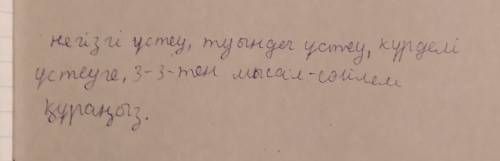 негізгі үстеу, туынды үстеу, күрделі
үстеуге, 3-3-тен мысал-сөйлем
құраңыз.